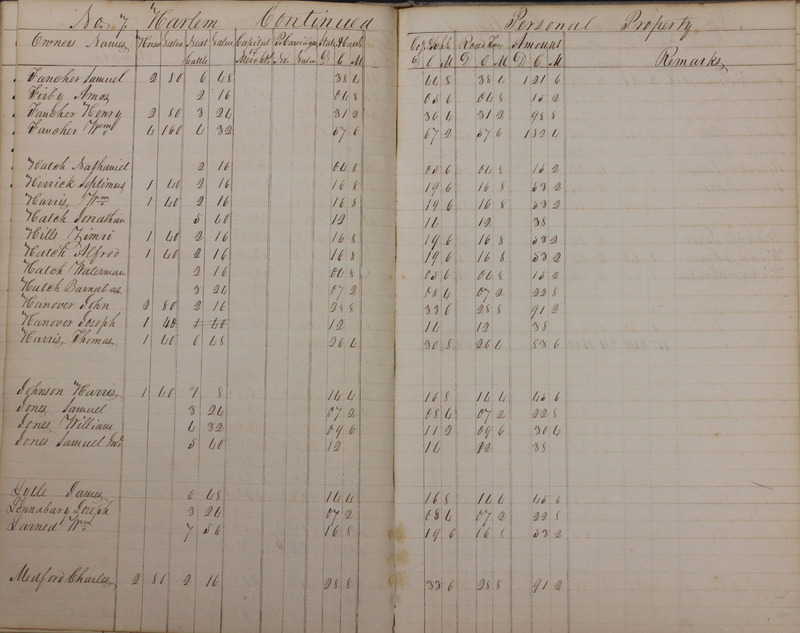 No. 7 Harlem Continued Personal Property
Owners Names Horses Value Neat Cattle Value Capital Merchts Carriages No. Value State & Canal D C M Co. & Sch C M Road Tax D C M Amount D C M Remarks
Fancher Samuel 2 80 6 48 38 4 44 8 38 4 1 21 6
Firby Amos 2 16 04 8 05 6 04 8 15 2
Fancher Henry 2 80 3 24 31 2 36 4 31 2 98 8
Fancher Wm 4 160 4 32 57 6 67 2 57 6 1 82 4
Hatch Nathaniel 2 16 04 8 05 6 04 8 15 2
Herrick Septimus 1 40 2 16 16 8 19 6 16 8 53 2
Harris, Wm 1 40 2 16 16 8 19 6 16 8 53 2
Hatch Jonathan 5 40 12 14 12 38
Hills Zimri 1 40 2 16 16 8 19 6 16 8 53 2
Hatch Alfred 1 40 2 16 16 8 19 6 16 8 53 2
Hatch Waterman 2 16 04 8 05 6 04 8 15 2
Hatch Barnabas 3 24 07 2 08 4 07 2 22 8
Hanover John 2 80 2 16 28 8 33 6 28 8 91 2
Hanover Joseph 1 40 12 14 12 38
Harris, Thomas 1 40 6 48 26 4 30 8 26 4 83 6
Johnson Harris 1 40 1 8 14 4 16 8 14 4 45 6
Jones Samuel 3 24 07 2 08 4 07 2 22 8
Jones William 4 32 09 6 11 2 09 6 30 4
Jones Samuel Jnr 5 40 12 14 12 38
Lytle James 6 48 14 4 16 8 14 4 45 6
Lennabary Joseph 3 24 07 2 08 4 07 2 22 8
Larned Wm 7 56 16 8 19 6 16 8 53 2
Medford Charles 2 80 2 16 28 8 33 6 28 8 91 2